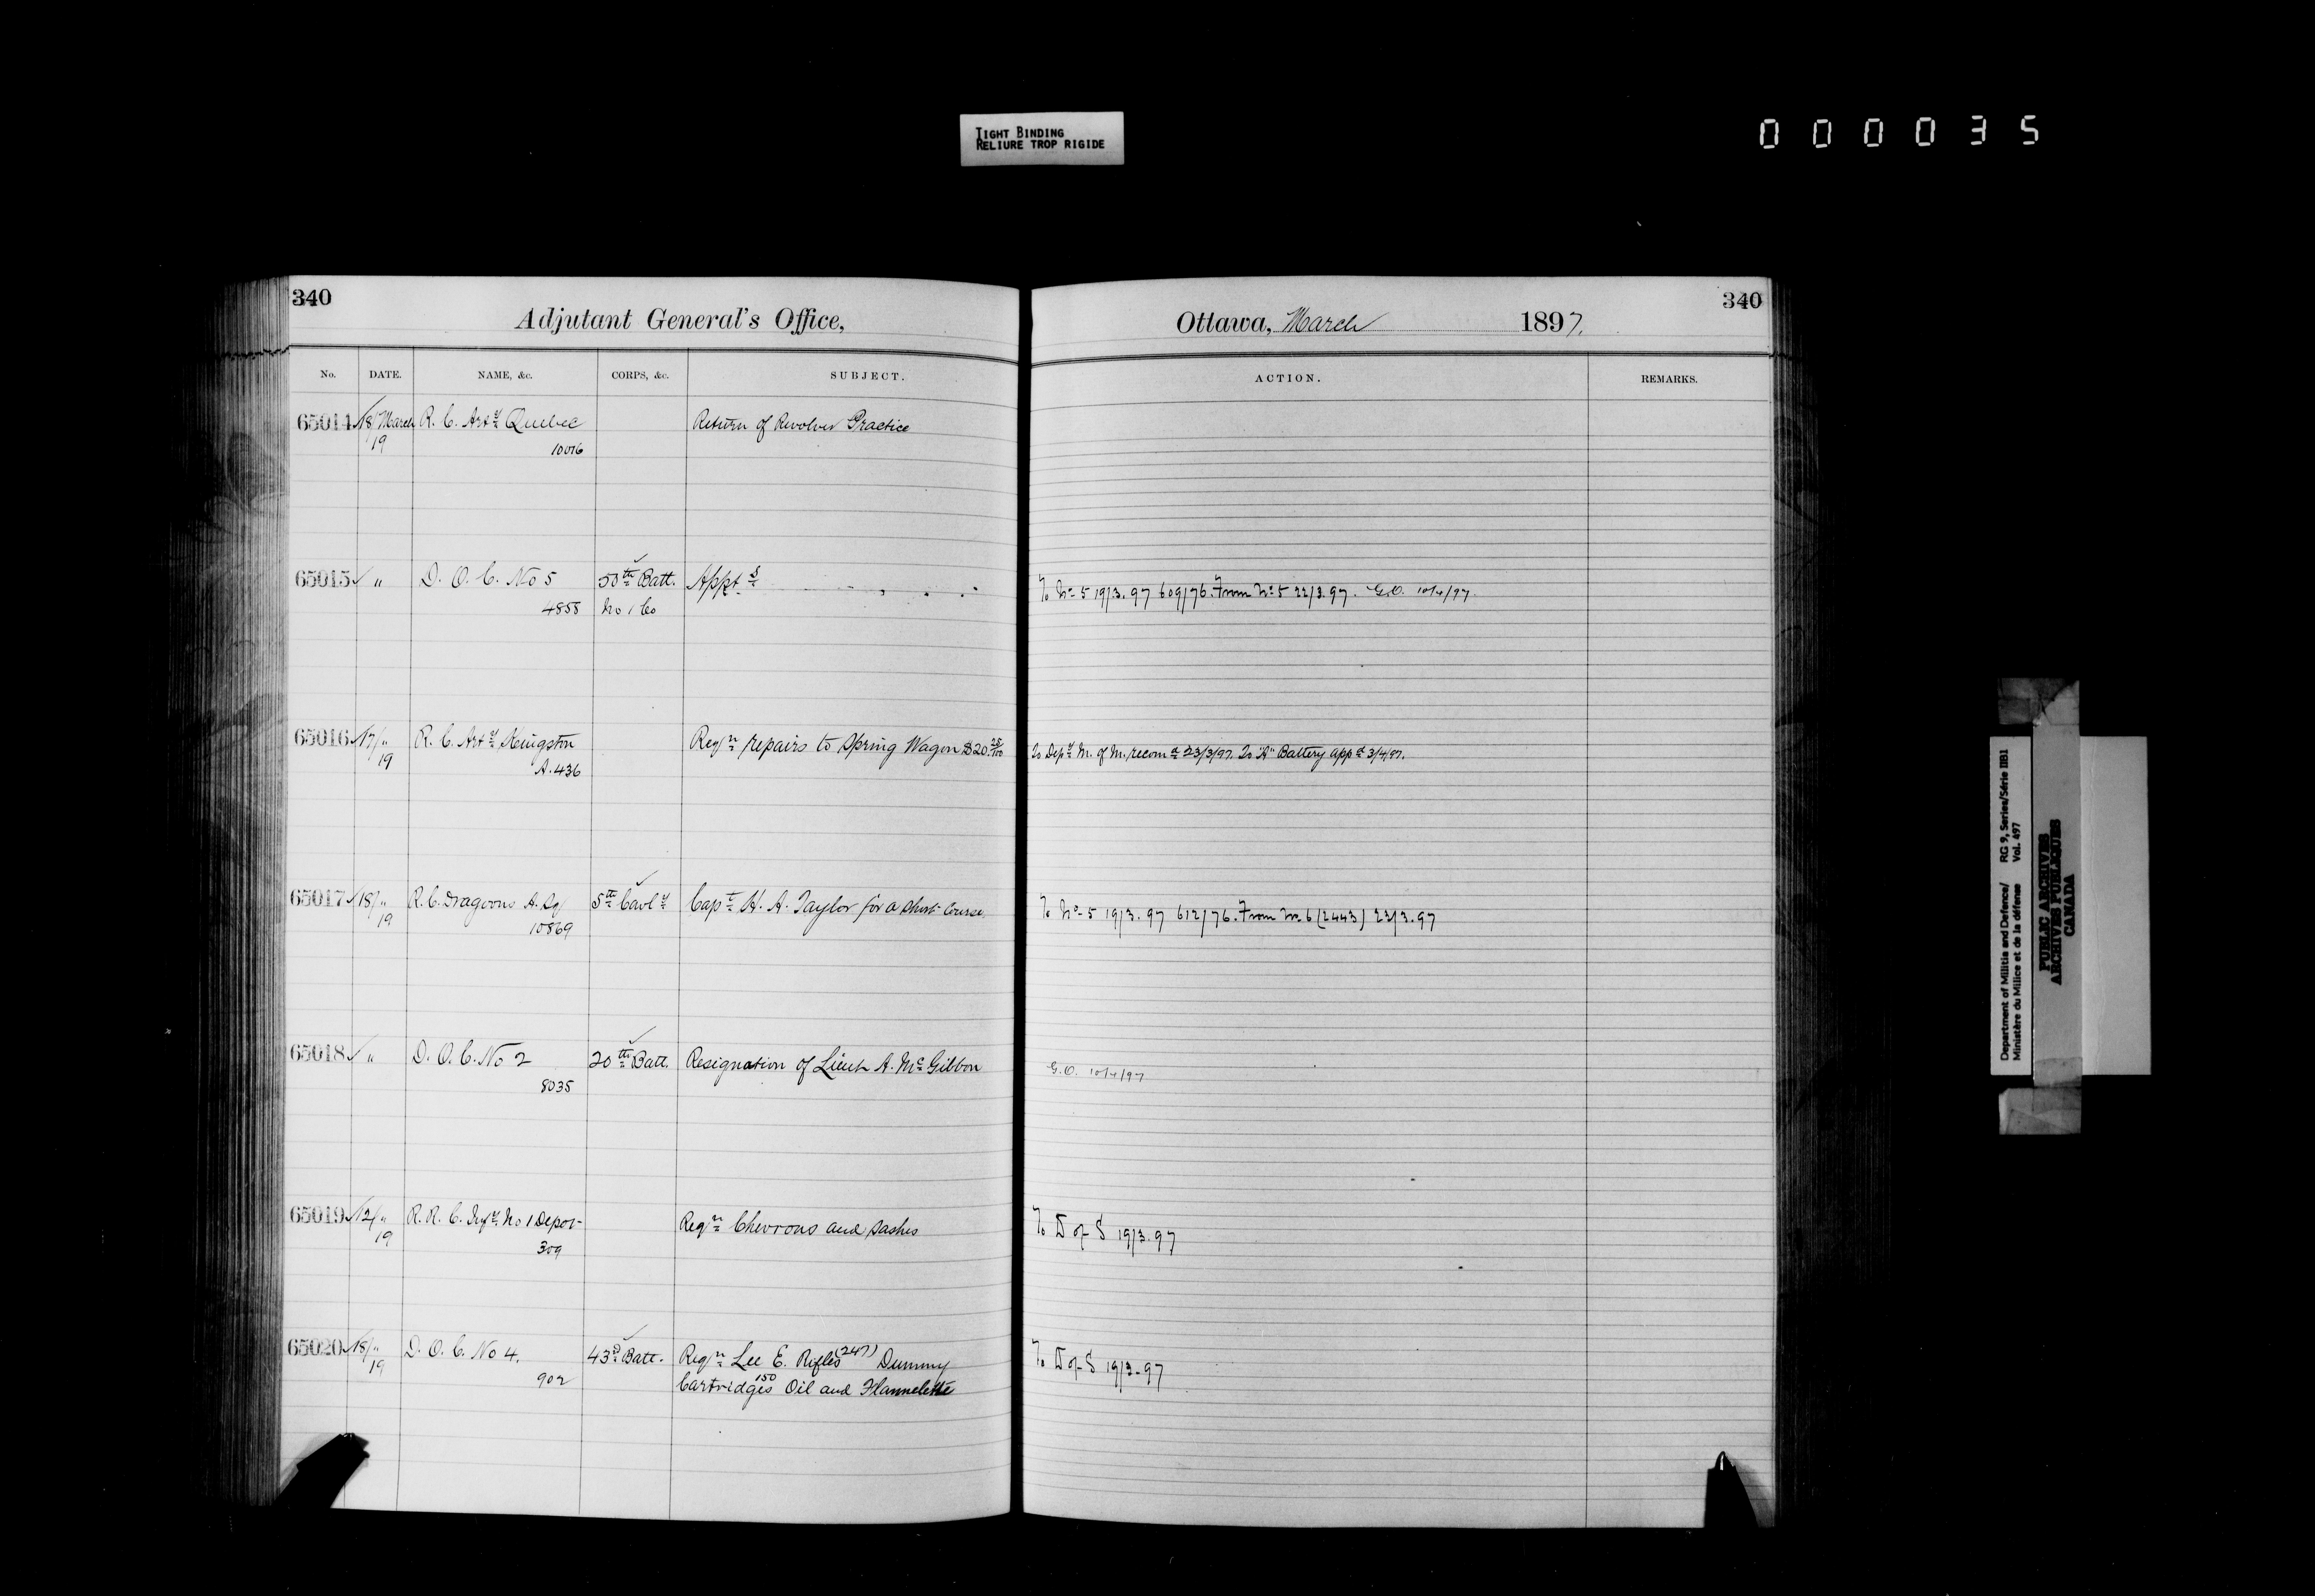 TIGHT BINDING
RELIURE TROP RIGIDE
000035
340
Adjutant General's Office,
No. DATE. NAME, &c. CORPS, &c. SUBJECT.
65014 18/March R. C. Arty Quebec Return of Revolver Practice
19
10016
65015 " D. O. C. No 5 50th Batt. Appts
4858 No 1 Co
65016 17/" R. C. Arty Kingston Reqn repairs to Spring Wagon $20.25/100
19 A.436
65017 18/" R. C. Dragoons A. Sq 5th Cavly Capt H. A. Taylor for a short course
19 10869
65018 " D. O. C. No 2 20th Batt. Resignation of Lieut A. McGibbon
8035
65019 12/" R. R. C. Infy No 1 Depot Reqn Chevrons and sashes
19 309
65020 18/" D. O. C. No 4. 43rd Batt. Reqn Lee E. Rifles (247) Dummy
19 902 Cartridges 150 Oil and Flannelette
340
Ottawa, March 1897.
ACTION. REMARKS.
To No 5 19/3.97 609/76. From No 5 22/3.97. G.O. 10/4/97
To Depy M. of M. recomd 23/3/97. To "A" Battery appd 3/4/97.
To No 5 19/3.97 612/76. From No 6 (2443) 23/3.97
G.O. 10/4/97
To D of S 19/3.97
To D of S 19/3.97
Department of Militia and Defence/ RG 9, Series/Série IIB1
Ministère du Milice et de la défense Vol. 497
PUBLIC ARCHIVES
ARCHIVES PUBLIQUES
CANADA